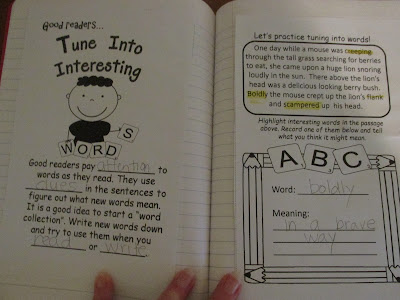 Good readers...
Tune Into
Interesting
WORDS
Good readers pay attention to
words as they read. They use
clues in the sentences to
figure out what new words mean.
It is a good idea to start a "word
collection". Write new words down
and try to use them when you
read or write.
Let's practice tuning into words!
One day while a mouse was creeping
through the tall grass searching for berries
to eat, she came upon a huge lion snoring
loudly in the sun. There above the lion's
head was a delicious looking berry bush.
Boldly the mouse crept up the lion's flank
and scampered up his head.
Highlight interesting words in the passage
above. Record one of them below and tell
what you think it might mean.
ABC
Word: boldly
Meaning:
in a brave
way